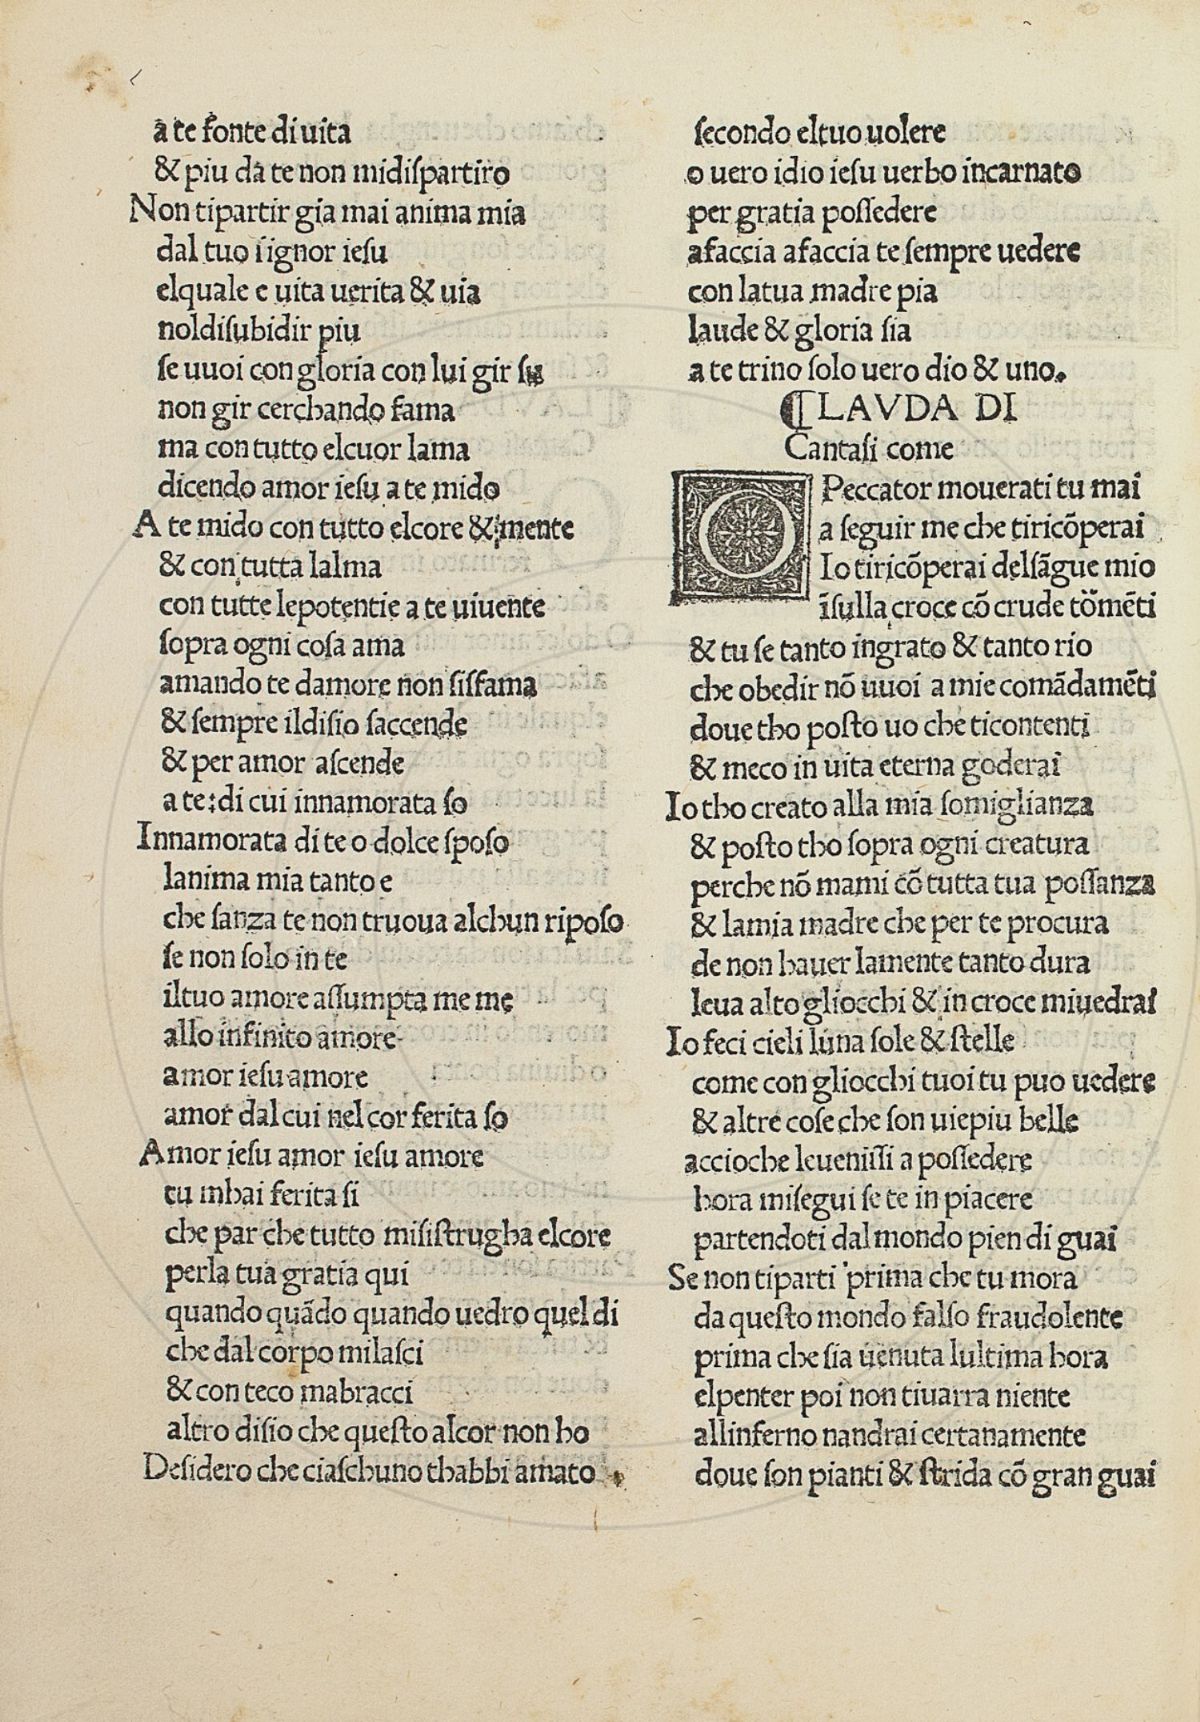 a te fonte di uita
& piu da te non midispartiro
Non tipartir gia mai anima mia
dal tuo signor iesu
elquale e uita uerita & uia
noldisubidir piu
se uuoi con gloria con lui gir su
non gir cerchando fama
ma con tutto elcuor lama
dicendo amor iesu a te mido
A te mido con tutto elcore & mente
& con tutta lalma
con tutte lepotentie a te uiuente
sopra ogni cosa ama
amando te damore non sisfama
& sempre ildisio saccende
& per amor ascende
a te: di cui innamorata so
Innamorata di te o dolce sposo
lanima mia tanto e
che sanza te non truoua alchun riposo
se non solo in te
iltuo amore assumpta me me
allo infinito amore
amor iesu amore
amor dal cui nel cor ferita so
Amor iesu amor iesu amore
tu mhai ferita si
che par che tutto misistrugha elcore
perla tua gratia qui
quando quādo quando uedro quel di
che dal corpo milasci
& con teco mabracci
altro disio che questo alcor non ho
Desidero che ciaschuno thabbi amato
secondo eltuo uolere
o uero idio iesu uerbo incarnato
per gratia possedere
afaccia afaccia te sempre uedere
con latua madre pia
laude & gloria sia
a te trino solo uero dio & uno.
¶ LAVDA DI
Cantasi come
O Peccator mouerati tu mai
a seguir me che tiricōperai
Io tiricōperai delsāgue mio
īsulla croce cō crude tōmēti
& tu se tanto ingrato & tanto rio
che obedir nō uuoi a mie comādamēti
doue tho posto uo che ticontenti
& meco in uita eterna goderai
Io tho creato alla mia somiglianza
& posto tho sopra ogni creatura
perche nō mami cō tutta tua possanza
& lamia madre che per te procura
de non hauer lamente tanto dura
leua alto gliocchi & in croce miuedrai
Io feci cieli luna sole & stelle
come con gliocchi tuoi tu puo uedere
& altre cose che son uiepiu belle
accioche leuenissi a possedere
hora misegui se te in piacere
partendoti dal mondo pien di guai
Se non tiparti prima che tu mora
da questo mondo falso fraudolente
prima che sia uenuta lultima hora
elpenter poi non tiuarra niente
allinferno nandrai certanamente
doue son pianti & strida cō gran guai